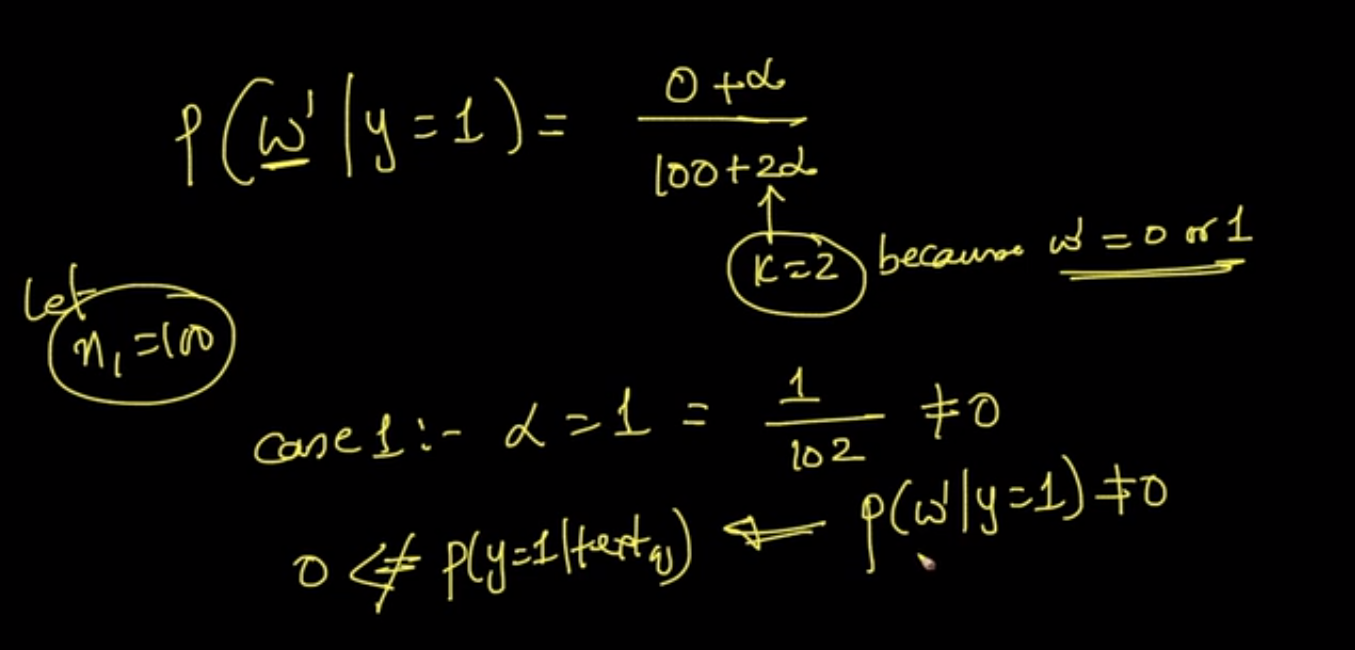 P(w'|y=1) = 0+α / 100+2α
K=2 because w' = 0 or 1
Let
n₁=100
case 1:- α=1 = 1/102 ≠0
P(w'|y=1)≠0
0 ≠ P(y=1|text_q) ⇐